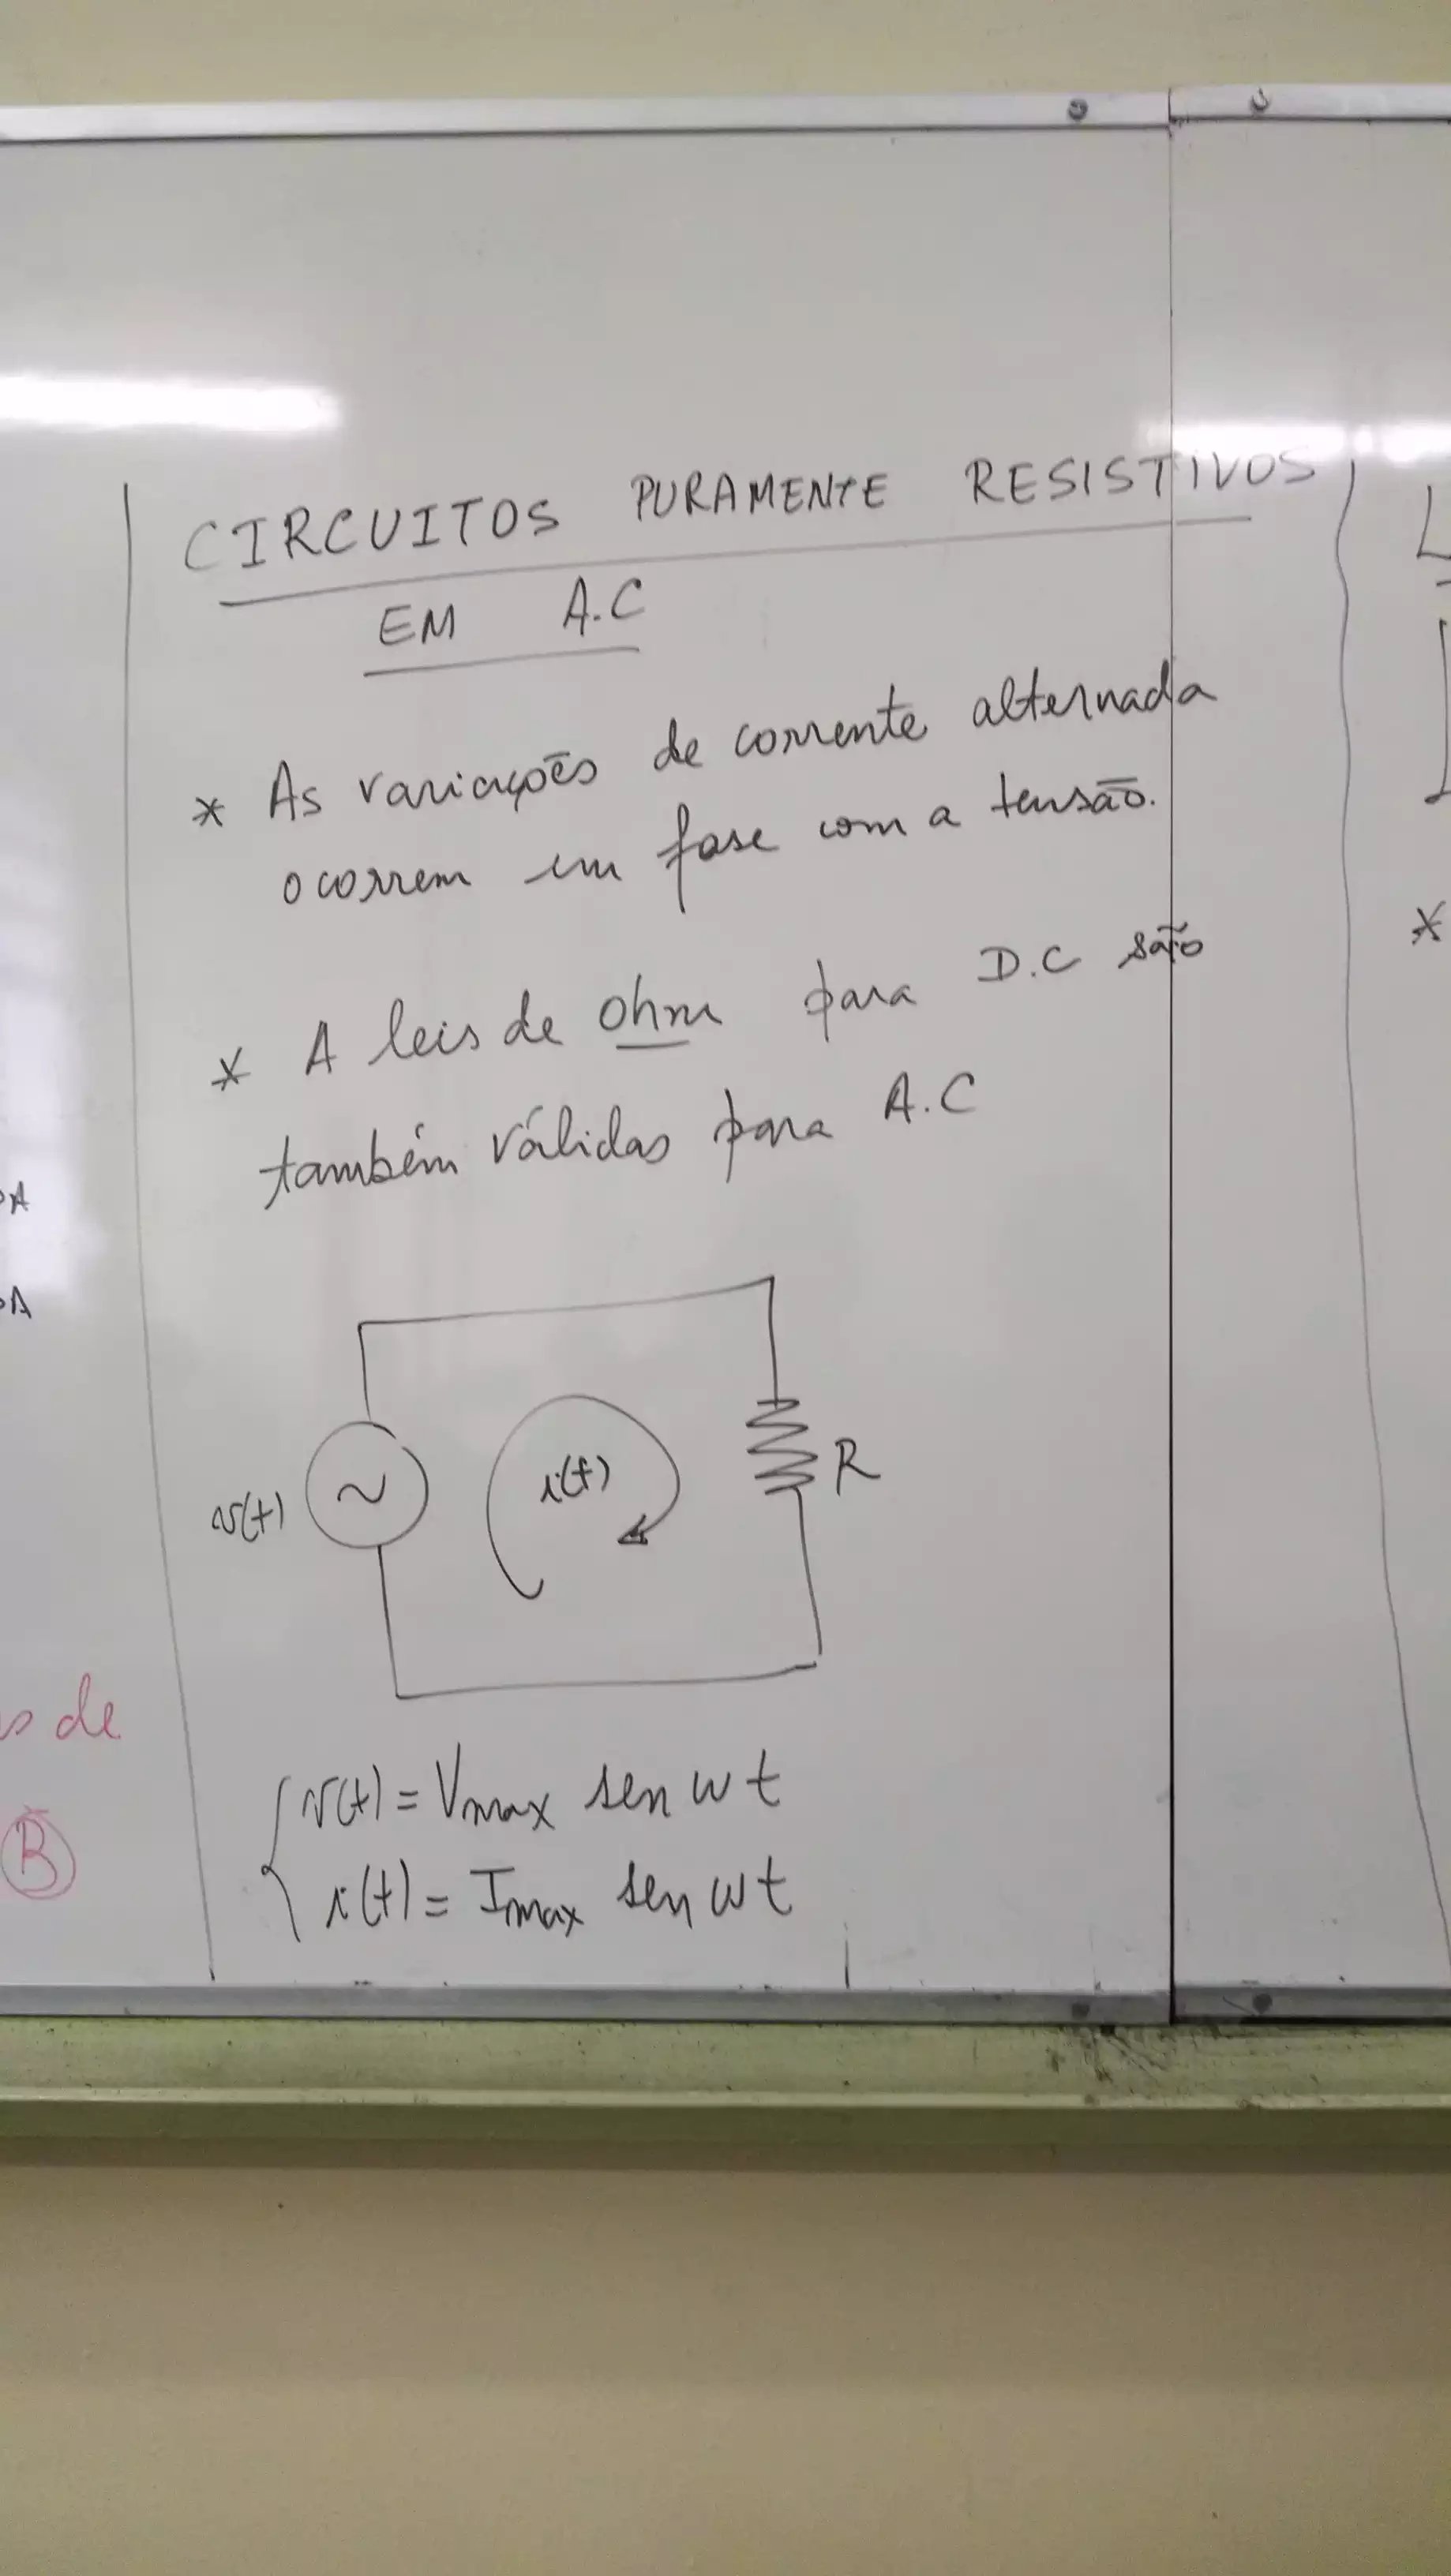 CIRCUITOS PURAMENTE RESISTIVOS
EM A.C
* As variações de corrente alternada
ocorrem em fase com a tensão.
* A leis de Ohm para D.C são
também válidas para A.C
v(t)
~
i(t)
R
v(t) = Vmax sen wt
i(t) = Imax sen wt
de
B
*